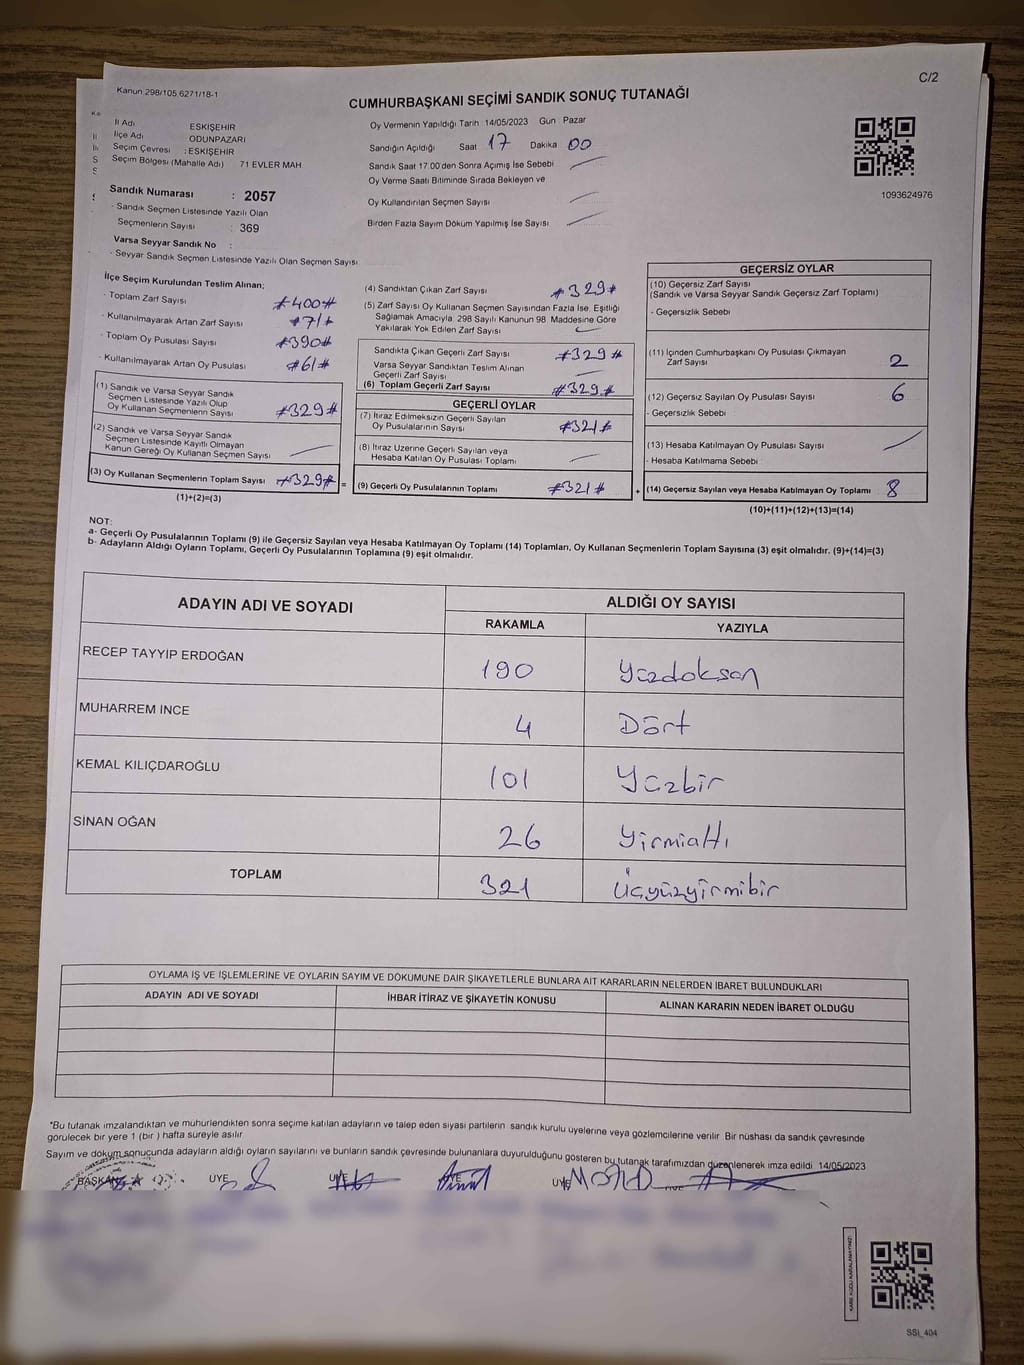 C/2
Kanun 298/105.6271/18-1
CUMHURBAŞKANI SEÇİMİ SANDIK SONUÇ TUTANAĞI
İl Adı ESKİŞEHİR
İlçe Adı ODUNPAZARI
Seçim Çevresi : ESKİŞEHİR
Seçim Bölgesi (Mahalle Adı) 71 EVLER MAH.
Sandık Numarası : 2057
- Sandık Seçmen Listesinde Yazılı Olan
Seçmenlerin Sayısı : 369
Varsa Seyyar Sandık No :
- Seyyar Sandık Seçmen Listesinde Yazılı Olan Seçmen Sayısı
Oy Vermenin Yapıldığı Tarih 14/05/2023 Gün Pazar
Sandığın Açıldığı Saat 17 Dakika 00
Sandık Saat 17.00'den Sonra Açılmış İse Sebebi
Oy Verme Saati Bitiminde Sırada Bekleyen ve
Oy Kullandırılan Seçmen Sayısı
Birden Fazla Sayım Döküm Yapılmış İse Sayısı
1093624976
İlçe Seçim Kurulundan Teslim Alınan;
- Toplam Zarf Sayısı #400#
- Kullanılmayarak Artan Zarf Sayısı #71#
- Toplam Oy Pusulası Sayısı #390#
- Kullanılmayarak Artan Oy Pusulası #61#
(1) Sandık ve Varsa Seyyar Sandık
Seçmen Listesinde Yazılı Olup
Oy Kullanan Seçmenlerin Sayısı #329#
(2) Sandık ve Varsa Seyyar Sandık
Seçmen Listesinde Kayıtlı Olmayan
Kanun Gereği Oy Kullanan Seçmen Sayısı
(3) Oy Kullanan Seçmenlerin Toplam Sayısı #329# =
(1)+(2)=(3)
(4) Sandıktan Çıkan Zarf Sayısı #329#
(5) Zarf Sayısı Oy Kullanan Seçmen Sayısından Fazla İse, Eşitliği
Sağlamak Amacıyla, 298 Sayılı Kanunun 98. Maddesine Göre
Yakılarak Yok Edilen Zarf Sayısı
Sandıkta Çıkan Geçerli Zarf Sayısı #329#
Varsa Seyyar Sandıktan Teslim Alınan
Geçerli Zarf Sayısı
(6) Toplam Geçerli Zarf Sayısı #329#
GEÇERLİ OYLAR
(7) İtiraz Edilmeksizin Geçerli Sayılan
Oy Pusulalarının Sayısı #321#
(8) İtiraz Üzerine Geçerli Sayılan veya
Hesaba Katılan Oy Pusulası Toplamı
(9) Geçerli Oy Pusulalarının Toplamı #321# +
GEÇERSİZ OYLAR
(10) Geçersiz Zarf Sayısı
(Sandık ve Varsa Seyyar Sandık Geçersiz Zarf Toplamı)
- Geçersizlik Sebebi
(11) İçinden Cumhurbaşkanı Oy Pusulası Çıkmayan
Zarf Sayısı 2
(12) Geçersiz Sayılan Oy Pusulası Sayısı 6
- Geçersizlik Sebebi
(13) Hesaba Katılmayan Oy Pusulası Sayısı
- Hesaba Katılmama Sebebi
(14) Geçersiz Sayılan veya Hesaba Katılmayan Oy Toplamı 8
(10)+(11)+(12)+(13)=(14)
NOT:
a- Geçerli Oy Pusulalarının Toplamı (9) ile Geçersiz Sayılan veya Hesaba Katılmayan Oy Toplamı (14) Toplamları, Oy Kullanan Seçmenlerin Toplam Sayısına (3) eşit olmalıdır. (9)+(14)=(3)
b- Adayların Aldığı Oyların Toplamı, Geçerli Oy Pusulalarının Toplamına (9) eşit olmalıdır.
ADAYIN ADI VE SOYADI ALDIĞI OY SAYISI
RAKAMLA YAZIYLA
RECEP TAYYİP ERDOĞAN 190 Yüzdoksan
MUHARREM İNCE 4 Dört
KEMAL KILIÇDAROĞLU 101 Yüzbir
SİNAN OĞAN 26 Yirmialtı
TOPLAM 321 Üçyüzyirmibir
OYLAMA İŞ VE İŞLEMLERİNE VE OYLARIN SAYIM VE DÖKÜMÜNE DAİR ŞİKAYETLERLE BUNLARA AİT KARARLARIN NELERDEN İBARET BULUNDUKLARI
ADAYIN ADI VE SOYADI İHBAR İTİRAZ VE ŞİKAYETİN KONUSU ALINAN KARARIN NEDEN İBARET OLDUĞU
*Bu tutanak imzalandıktan ve mühürlendikten sonra seçime katılan adayların ve talep eden siyasi partilerin sandık kurulu üyelerine veya gözlemcilerine verilir. Bir nüshası da sandık çevresinde
görülecek bir yere 1 (bir) hafta süreyle asılır.
Sayım ve döküm sonucunda adayların aldığı oyların sayılarını ve bunların sandık çevresinde bulunanlara duyurulduğunu gösteren bu tutanak tarafımızdan düzenlenerek imza edildi 14/05/2023
BAŞKAN ÜYE ÜYE ÜYE ÜYE ÜYE
KARE KODU KARALAMAYINIZ!
SSI_404